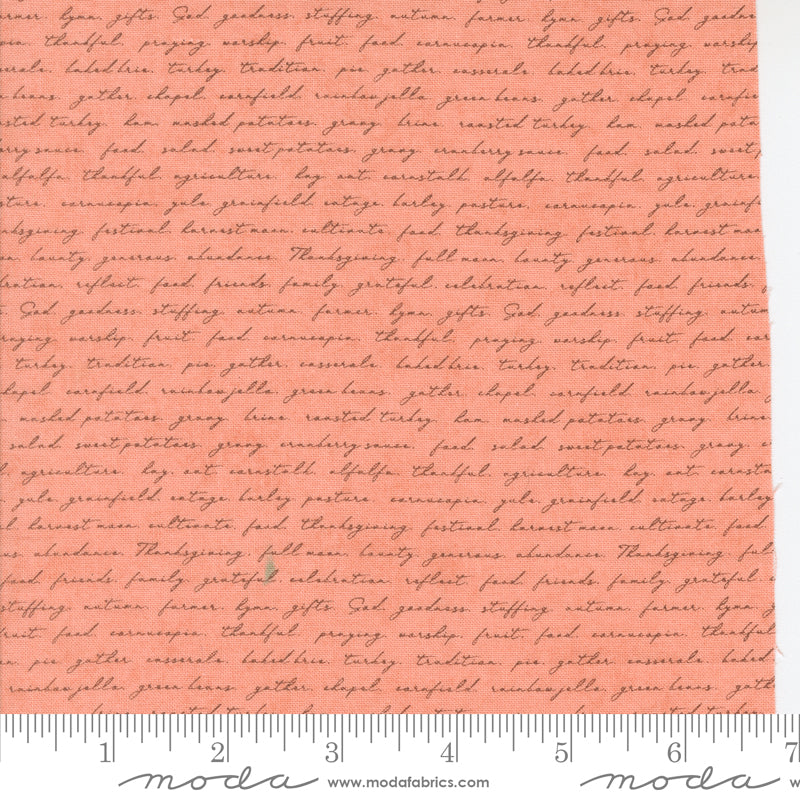 hymn. gifts. God. goodness. stuffing. autumn. farmer. hymn. gifts. God. goodne
thankful. praying. worship. fruit. food. cornucopia. thankful. praying. worship
baked brie. turkey. tradition. pie. gather. casserole. baked brie. turkey. trad
beans. gather. chapel. cornfield. rainbow jello. green beans. gather. chapel. cornfie
turkey. ham. mashed potatoes. gravy. brine. roasted turkey. ham. mashed pota
sauce. food. salad. sweet potatoes. gravy. cranberry sauce. food. salad. sweet
alfalfa. thankful. agriculture. hay. oat. cornstalk. alfalfa. thankful. agriculture
cornucopia. yule. grainfield. cotage. barley. pasture. cornucopia. yule. grainf
festival. harvest moon. cultivate. food. thanksgiving. festival. harvest moo
bounty. generous. abundance. Thanksgiving. full moon. bounty. generous. abundance.
reflect. food. friends. family. grateful. celebration. reflect. food. friends.
God. goodness. stuffing. autumn. farmer. hymn. gifts. God. goodness. stuffing. autum
worship. fruit. food. cornucopia. thankful. praying. worship. fruit. food. cor
turkey. tradition. pie. gather. casserole. baked brie. turkey. tradition. pie. gather
chapel. cornfield. rainbow jello. green beans. gather. chapel. cornfield. rainbow jello
mashed potatoes. gravy. brine. roasted turkey. ham. mashed potatoes. gravy. brine
salad. sweet potatoes. gravy. cranberry sauce. food. salad. sweet potatoes. gravy. c
agriculture. hay. oat. cornstalk. alfalfa. thankful. agriculture. hay. oat. cornsta
yule. grainfield. cotage. barley. pasture. cornucopia. yule. grainfield. cotage. barley
harvest moon. cultivate. food. thanksgiving. festival. harvest moon. cultivate. food
abundance. Thanksgiving. full moon. bounty. generous. abundance. Thanksgiving. ful
food. friends. family. grateful. celebration. reflect. food. friends. family. grateful. c
stuffing. autumn. farmer. hymn. gifts. God. goodness. stuffing. autumn. farmer. hymn. g
fruit. food. cornucopia. thankful. praying. worship. fruit. food. cornucopia. thankful
pie. gather. casserole. baked brie. turkey. tradition. pie. gather. casserole. baked
rainbow jello. green beans. gather. chapel. cornfield. rainbow jello. green beans. gath
1 2 3 4 5 6 7
moda www.modafabrics.com moda w